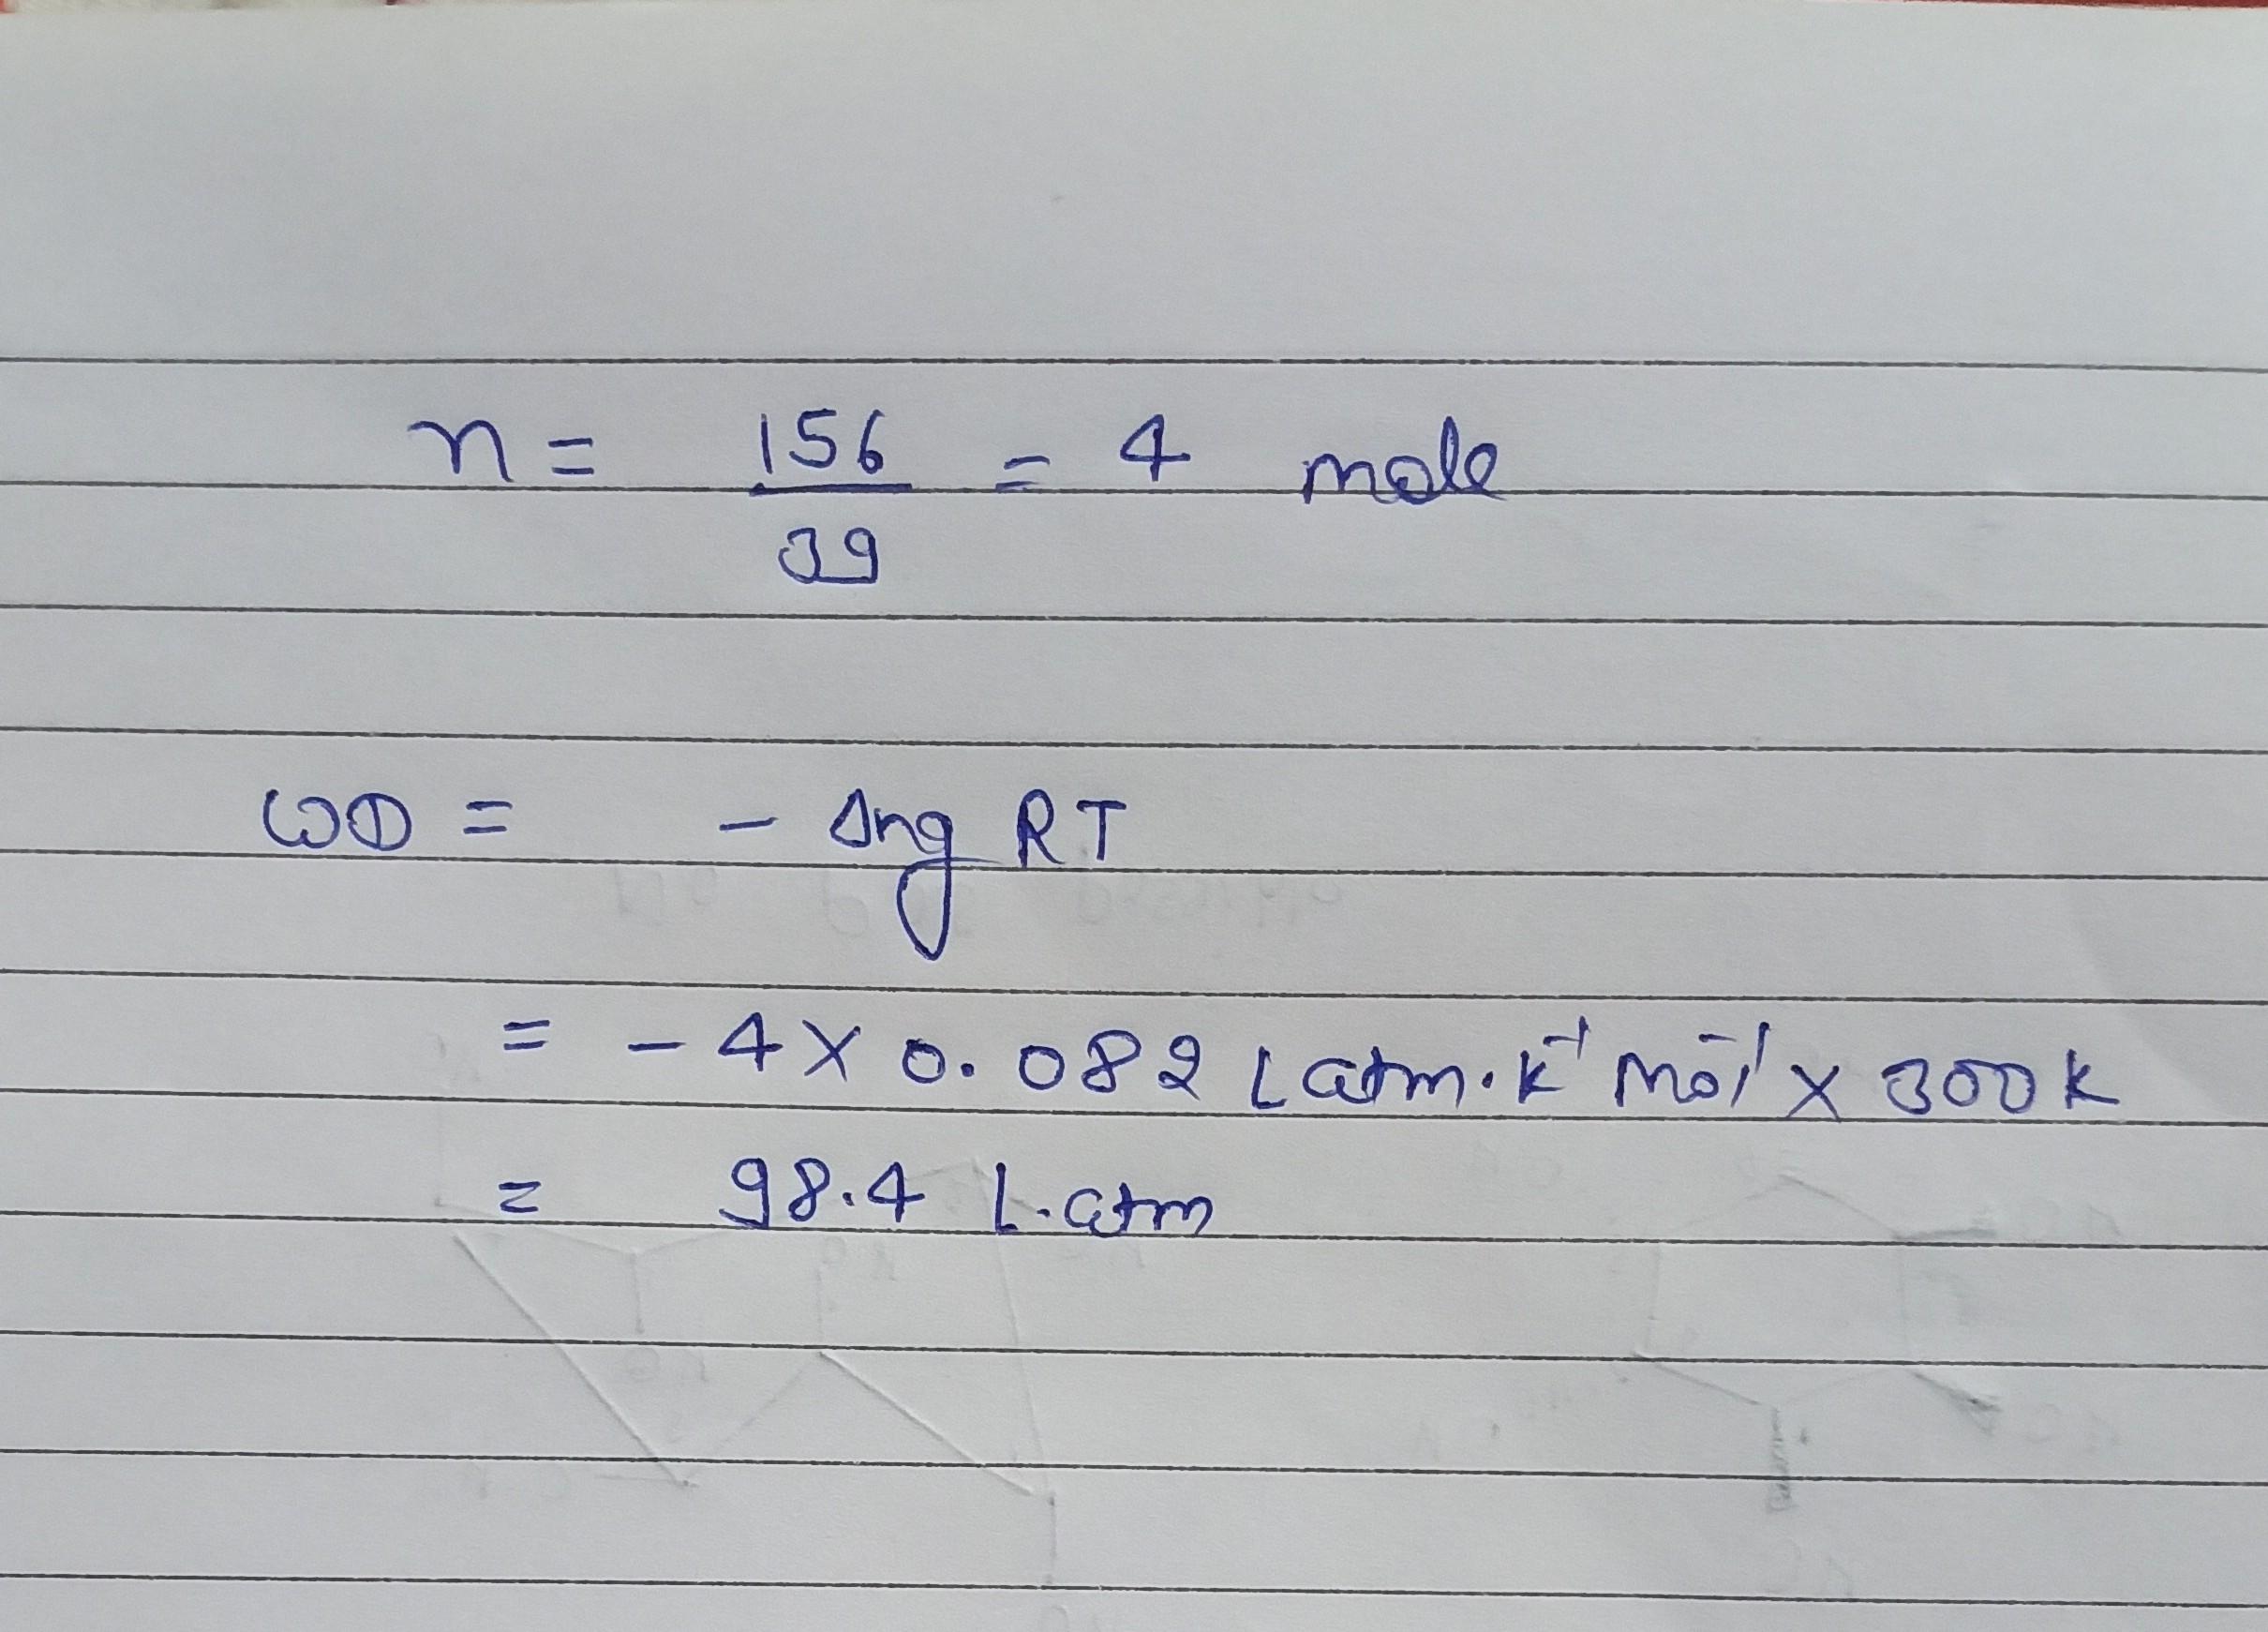 n = 156/39 = 4 mole
WD = - Δng RT
= - 4 × 0.082 L atm. K⁻¹ mol⁻¹ × 300 K
= 98.4 L. atm